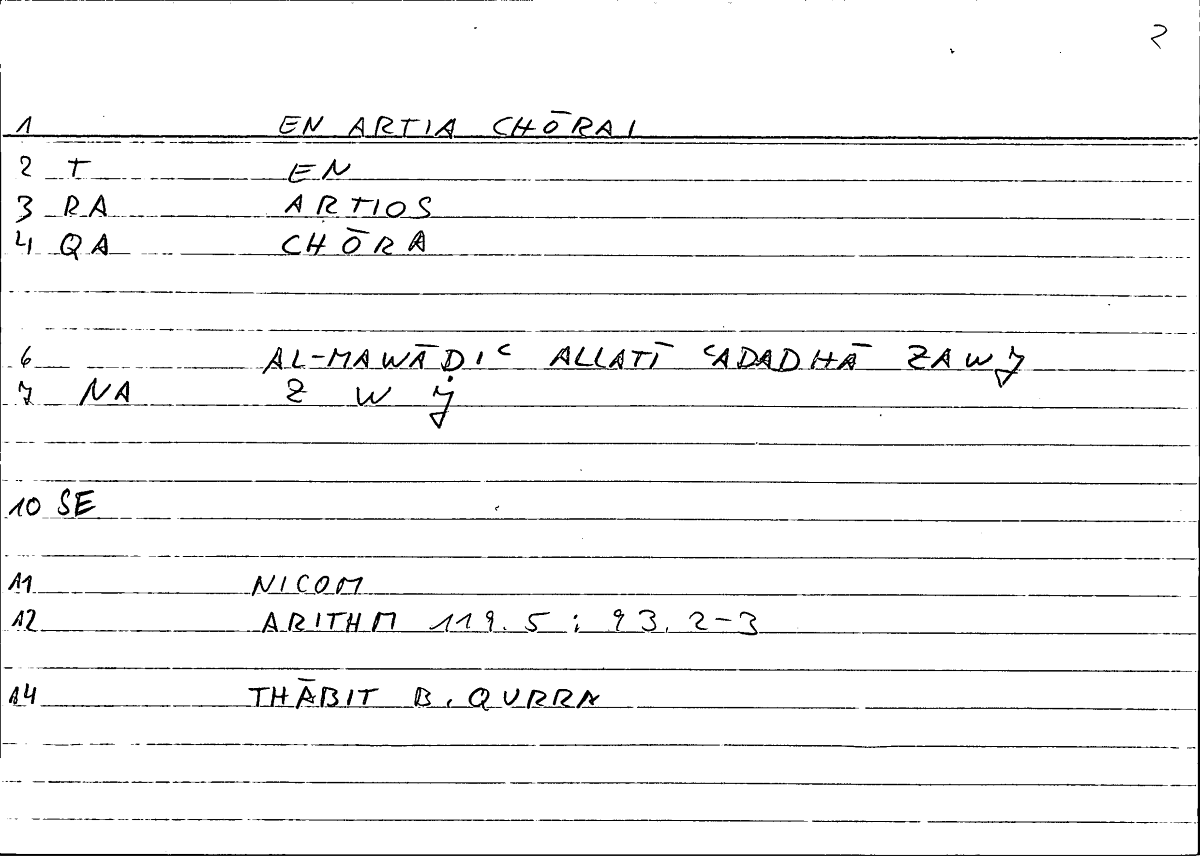 2
1 EN ARTIA CHŌRAI
2 T EN
3 RA ARTIOS
4 QA CHŌRA
6 AL-MAWĀḌIʿ ALLATĪ ʿADADHĀ ZAWJ
7 NA Z W J
10 SE
11 NICOM
12 ARITHM 119.5 ; 93.2-3
14 THĀBIT B. QURRA